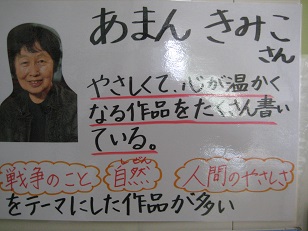 あまん きみこ
さん
やさしくて、心が温かく
なる作品をたくさん書い
ている。
戦争のこと 自然 人間のやさしさ
しぜん
をテーマにした作品が多い